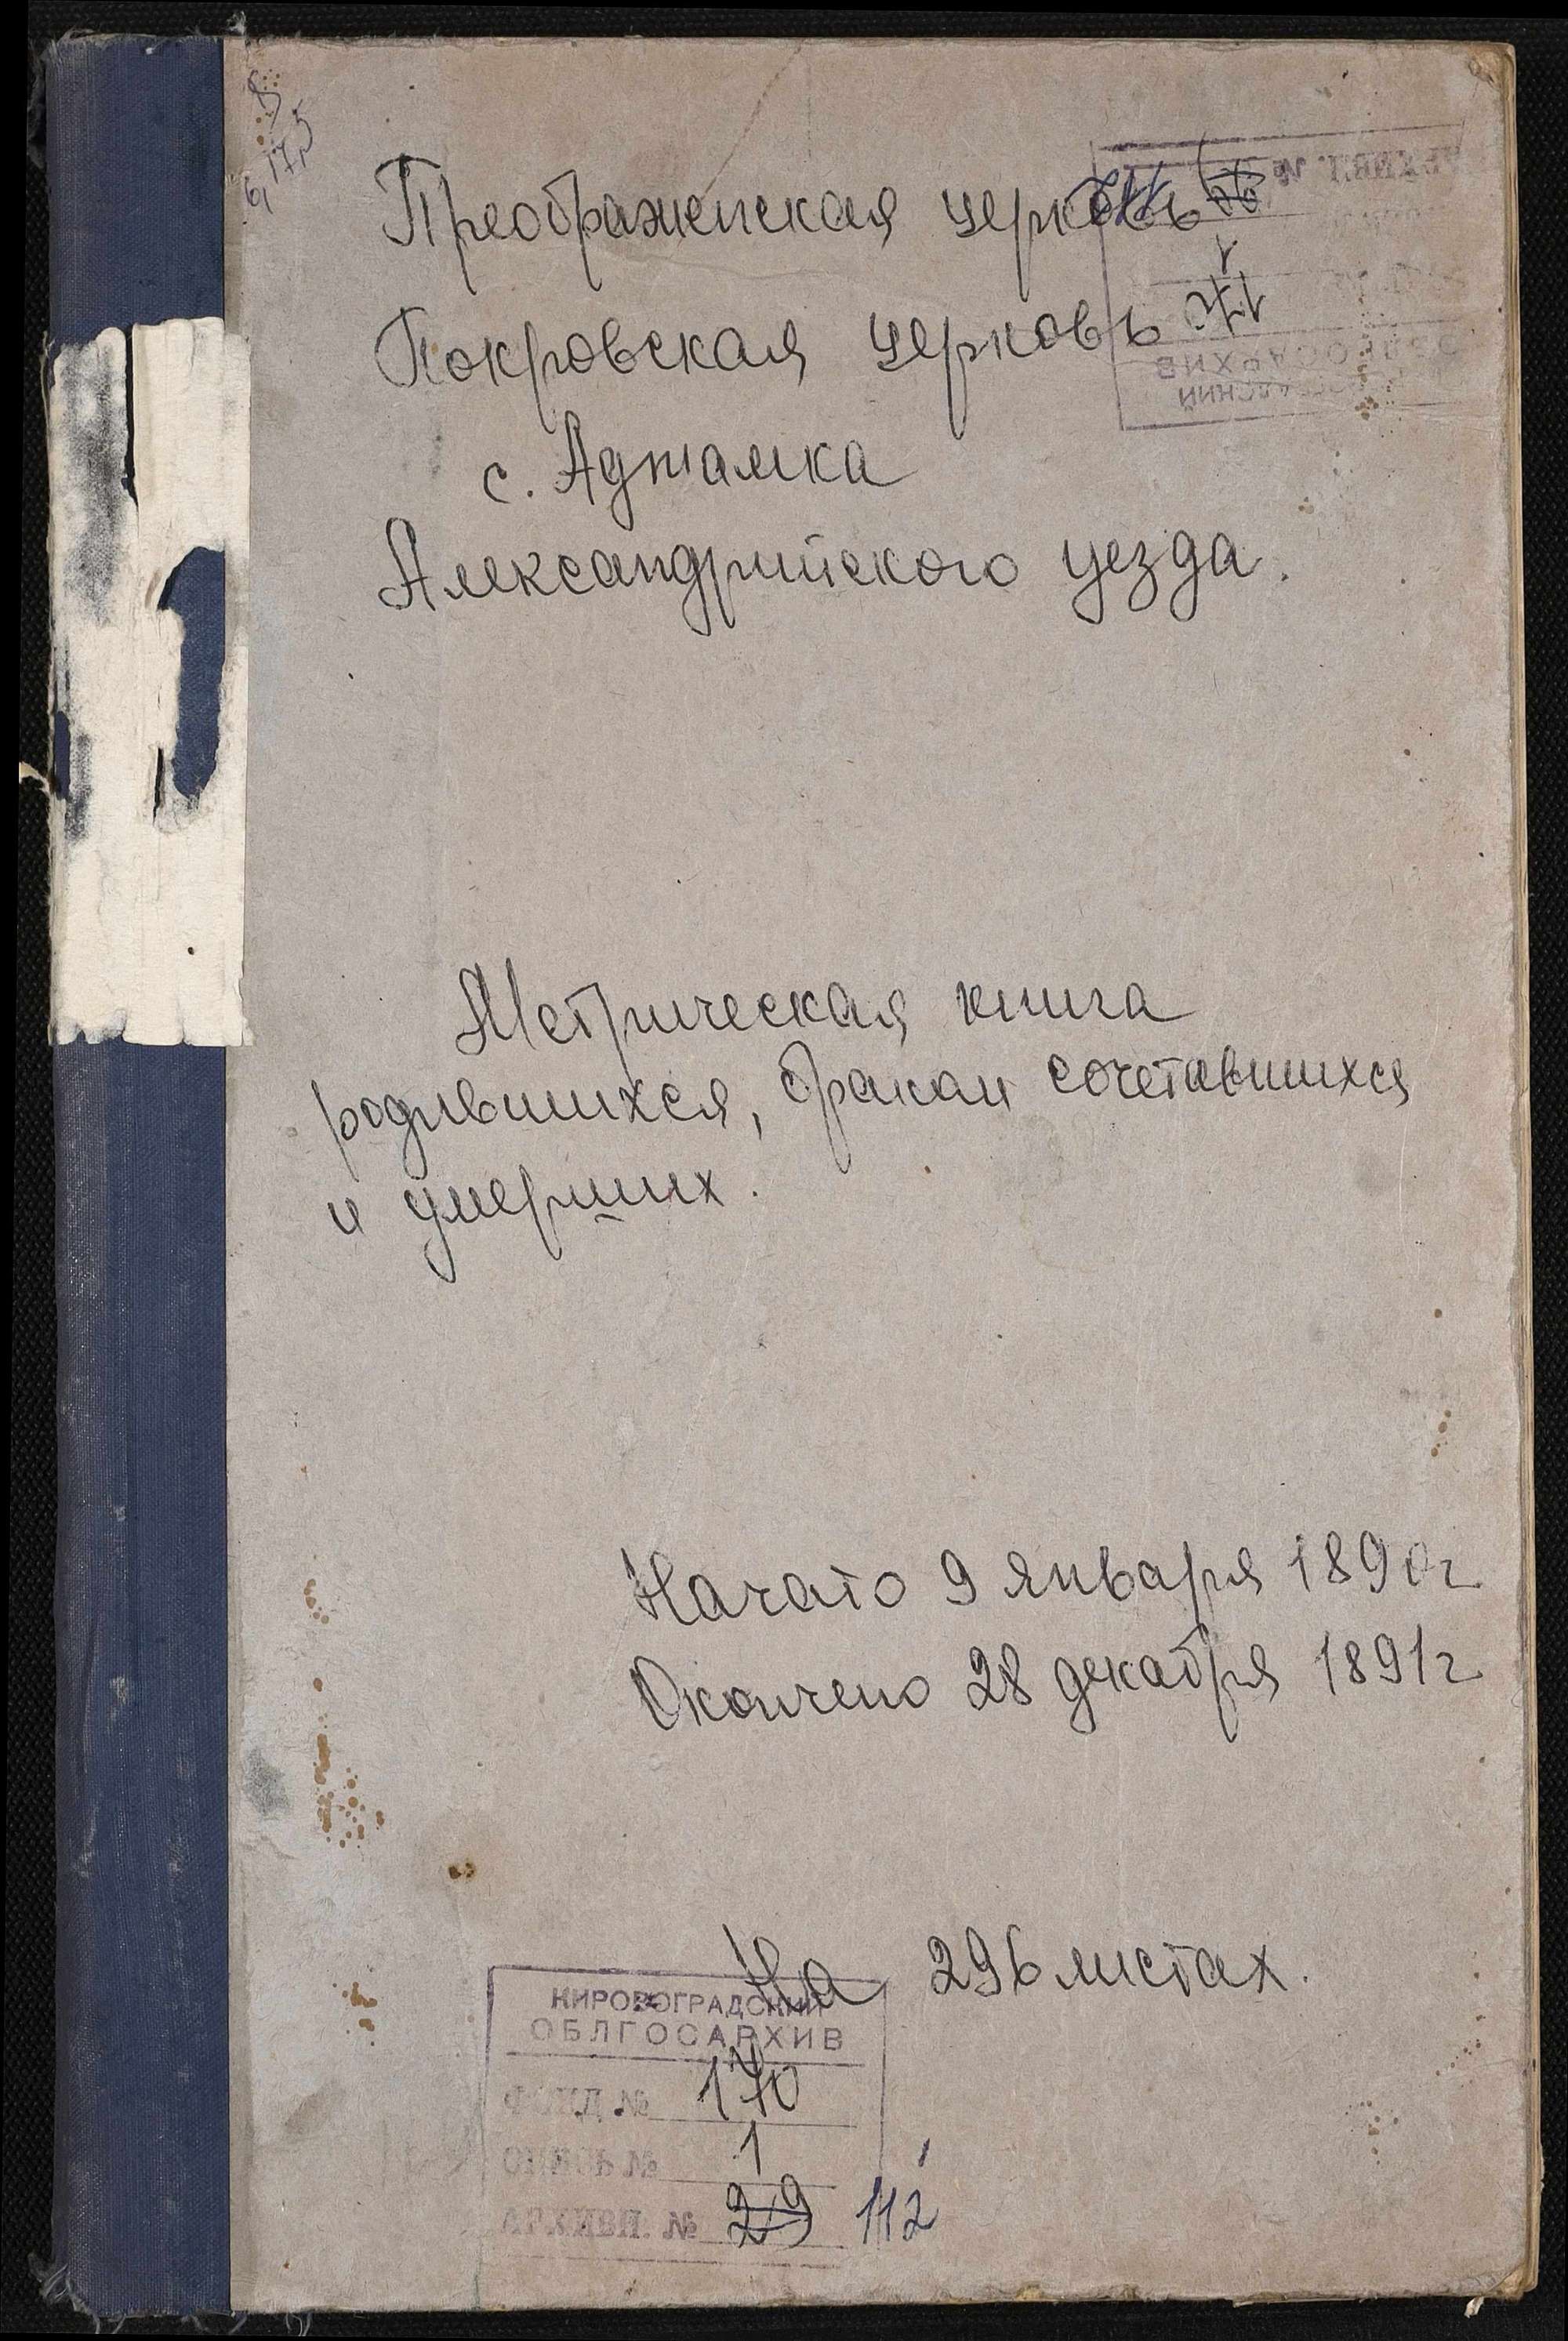 Преображенская церковь
Покровская церковь
с. Аджамка
Александрийского уезда.
Метрическая книга
родившихся, браком сочетавшихся
и умерших.
Начато 9 января 1890г
Окончено 28 декабря 1891г
На 296 листах.
КИРОВОГРАДСКИЙ
ОБЛГОСАРХИВ
ФОНД № 170
ОПИСЬ № 1
АРХИВН. № 29 112